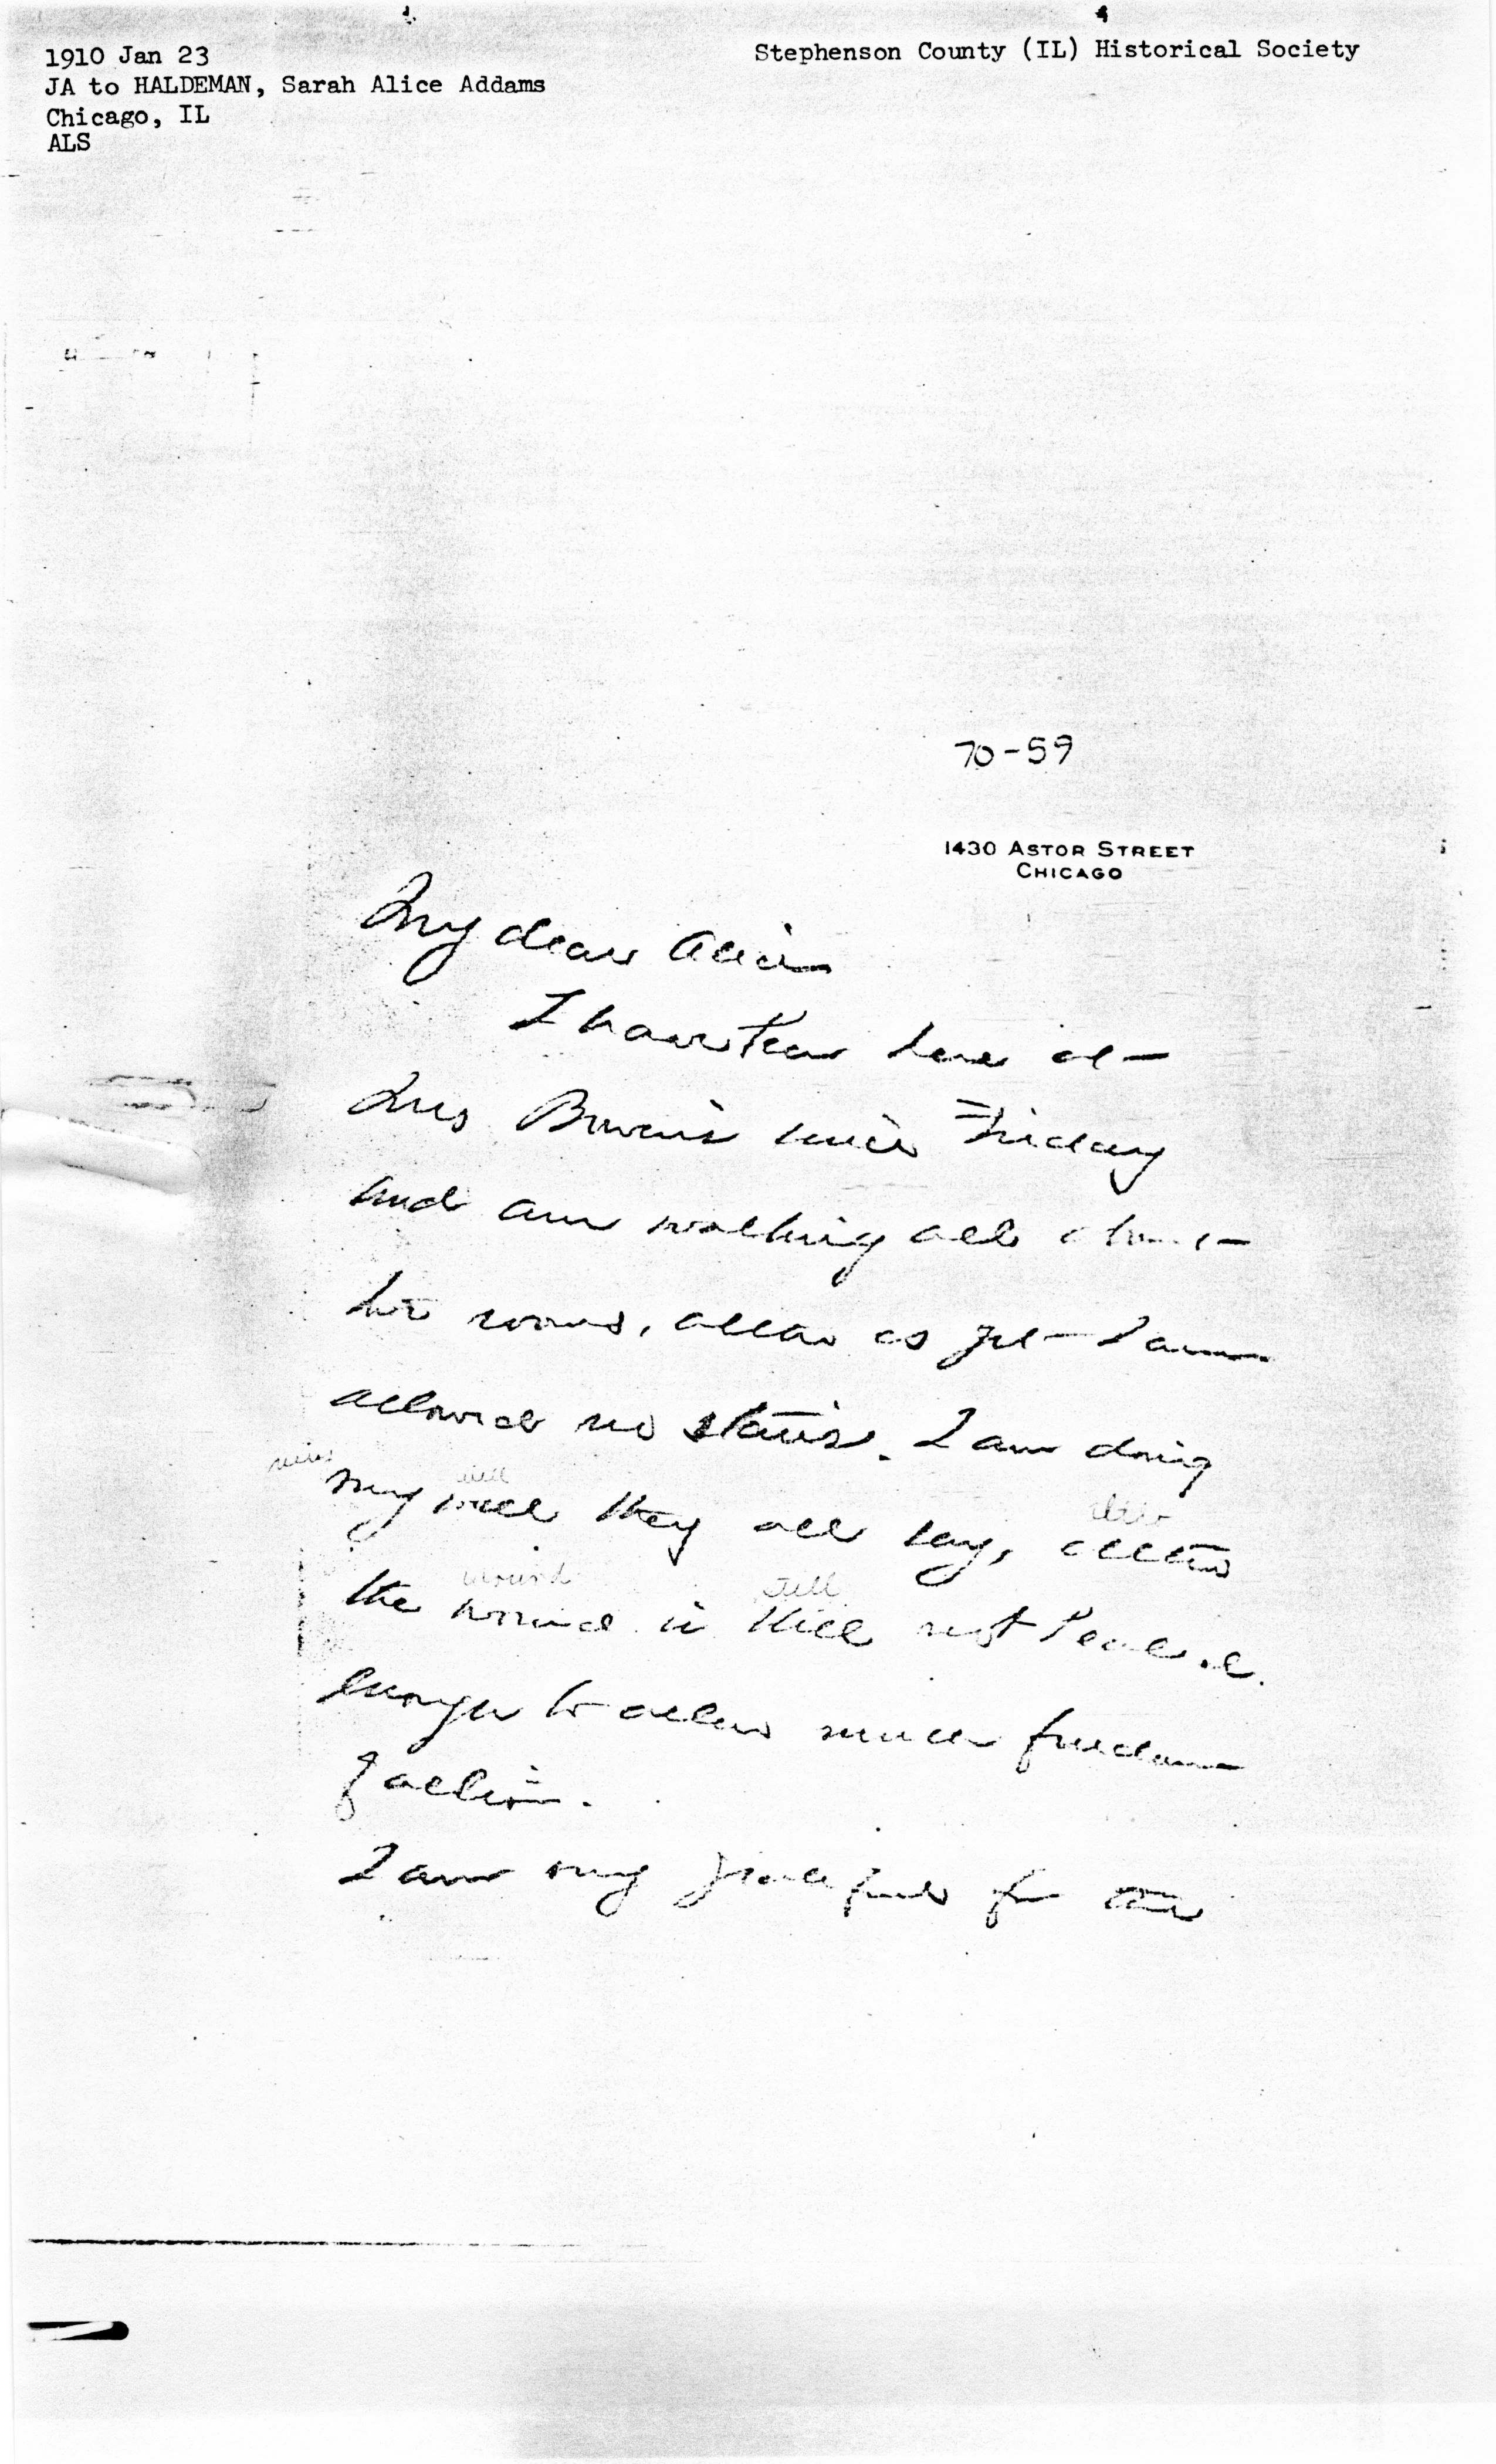 1910 Jan 23
JA to HALDEMAN, Sarah Alice Addams
Chicago, IL
ALS
Stephenson County (IL) Historical Society
70-59
1430 ASTOR STREET
CHICAGO
My dear Alice
I have been here at
Mrs Bowen's since Friday
and am walking all about
two rooms, altho as yet I am
allowed no stairs. I am doing
very well they all say, altho
well
the wound is still not healed
wound still
enough to allow much freedom
of action.
I am very grateful for the